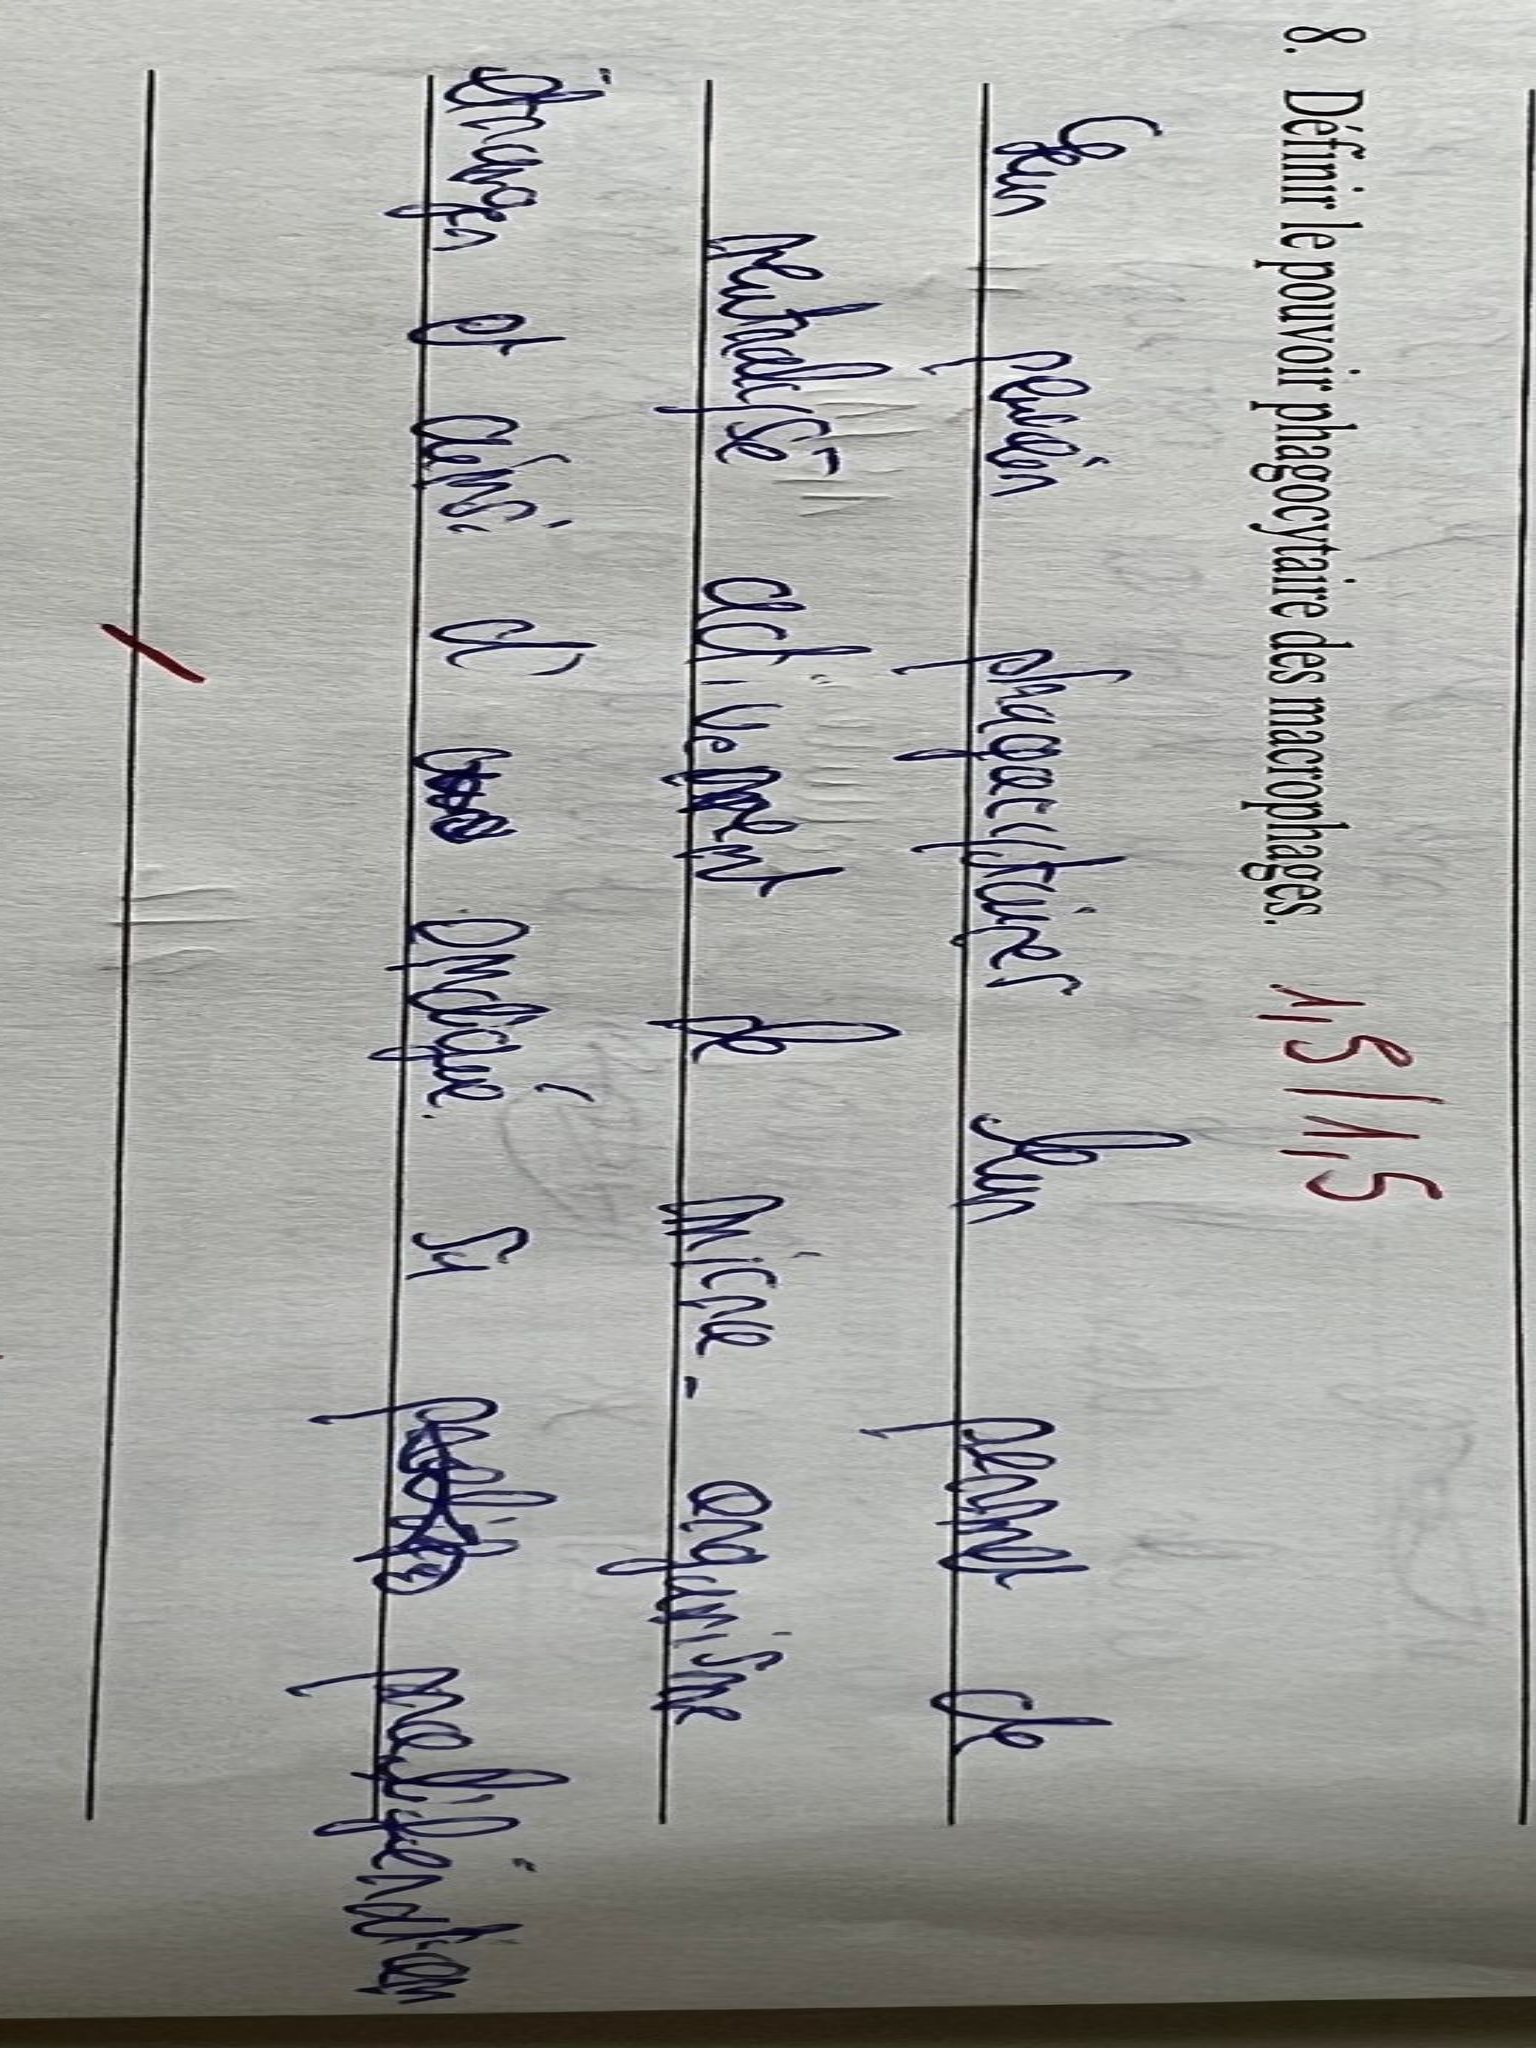 8. Définir le pouvoir phagocytaire des macrophages. 1,5/1,5
Ceur pouvoir phagocytaires leur permet de
neutralysé activement le micro-organisme
étranger et ainsi d' Opméliqué. sa prolifération